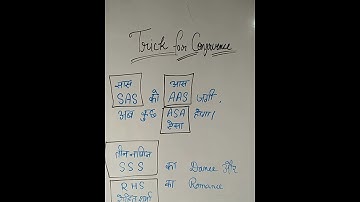 Trick for Congruence
सास आस
SAS को AAS जगी,
अब कुछ ASA होगा।
ऐसा
तीन नागिन
SSS का Dance और
RHS का Romance